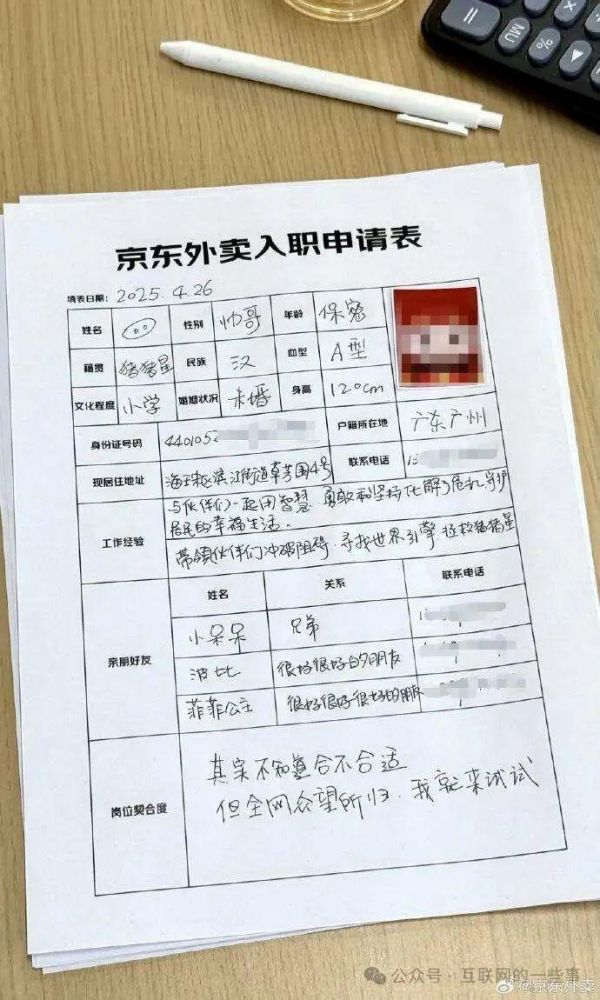 京东外卖入职申请表
填表日期: 2025.4.26
姓名 性别 帅哥 年龄 保密
籍贯 猪猪星 民族 汉 血型 A型
文化程度 小学 婚姻状况 未婚 身高 120cm
身份证号码 4401052 户籍所在地 广东广州
现居住地址 海珠区滨江街道草芳围4号 联系电话 1
工作经验
与伙伴们一起用智慧 勇敢和坚持化解了危机,守护
居民的幸福生活.
带领伙伴们冲破阻碍.寻找世界引擎 拯救猪猪星
亲朋好友 姓名 关系 联系电话
小呆呆 兄弟
波比 很好很好的朋友
菲菲公主 很好很好很好的朋
岗位契合度
其实不知道合不合适
但全网众望所归.我就来试试
公众号 · 互联网的一些事
@京东外卖